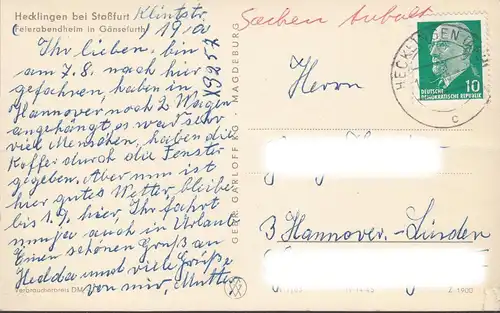 Hecklingen bei Staßfurt
Feierabendheim in Gänsefurth
Klintstr.
19a
Sachen Anhalt
Ihr lieben, bin
am 7.8. nach hier
gefahren, haben in
Hannover noch 2 Wagen
angehängt, es war sehr
viel Menschen, haben die
Koffer durch die Fenster
gegeben. Aber nun ist
hier gutes Wetter, bleibe
bis 1.9. hier, Ihr fahrt
nun ja auch in Urlaub
Einen schönen Gruß an
Hedda und viele Grüße
von mir, Mutter
Verbraucherpreis DM
GEBR. GARLOFF KG · MAGDEBURG
Herrn
3 Hannover.-Linden
HECKLINGEN
c
10
DEUTSCHE
DEMOKRATISCHE REPUBLIK
Z 1900